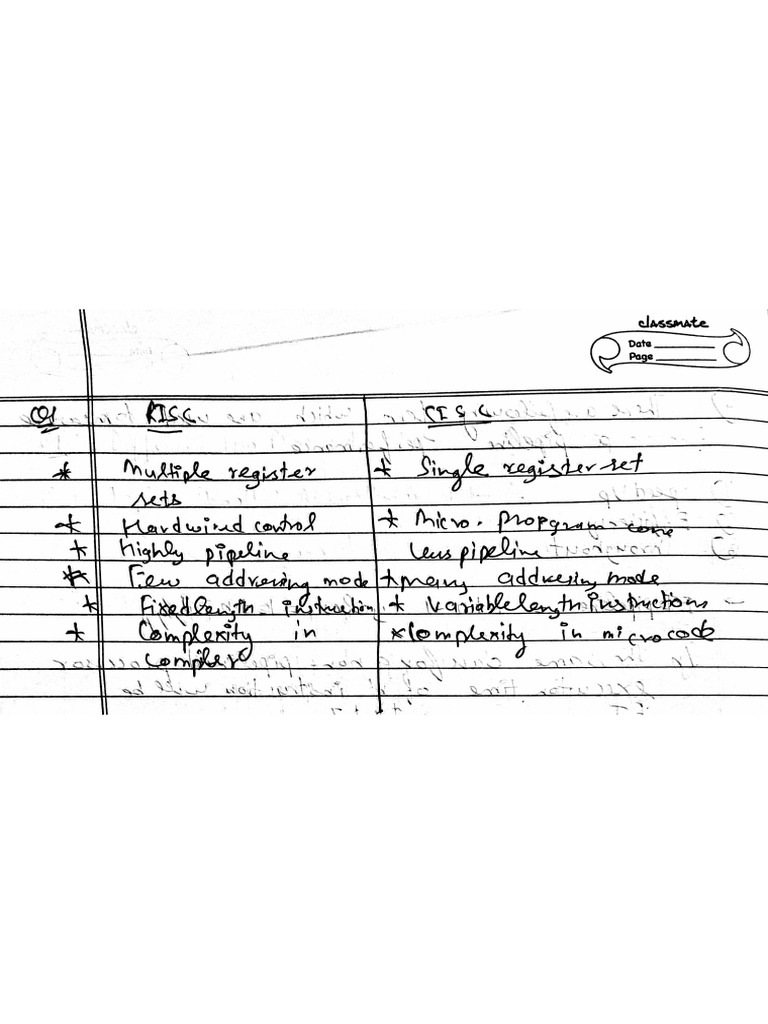 classmate
Date
Page
Q1 RISC CISC
* Multiple register * Single register set
sets
* Hardwired control * Micro. Propgram cone
* highly pipeline Less pipeline
* Few addressing mode * many addressing mode
* Fixed length instruction * Variable length instructions
* Complexity in * Complexity in microcode
Compiler